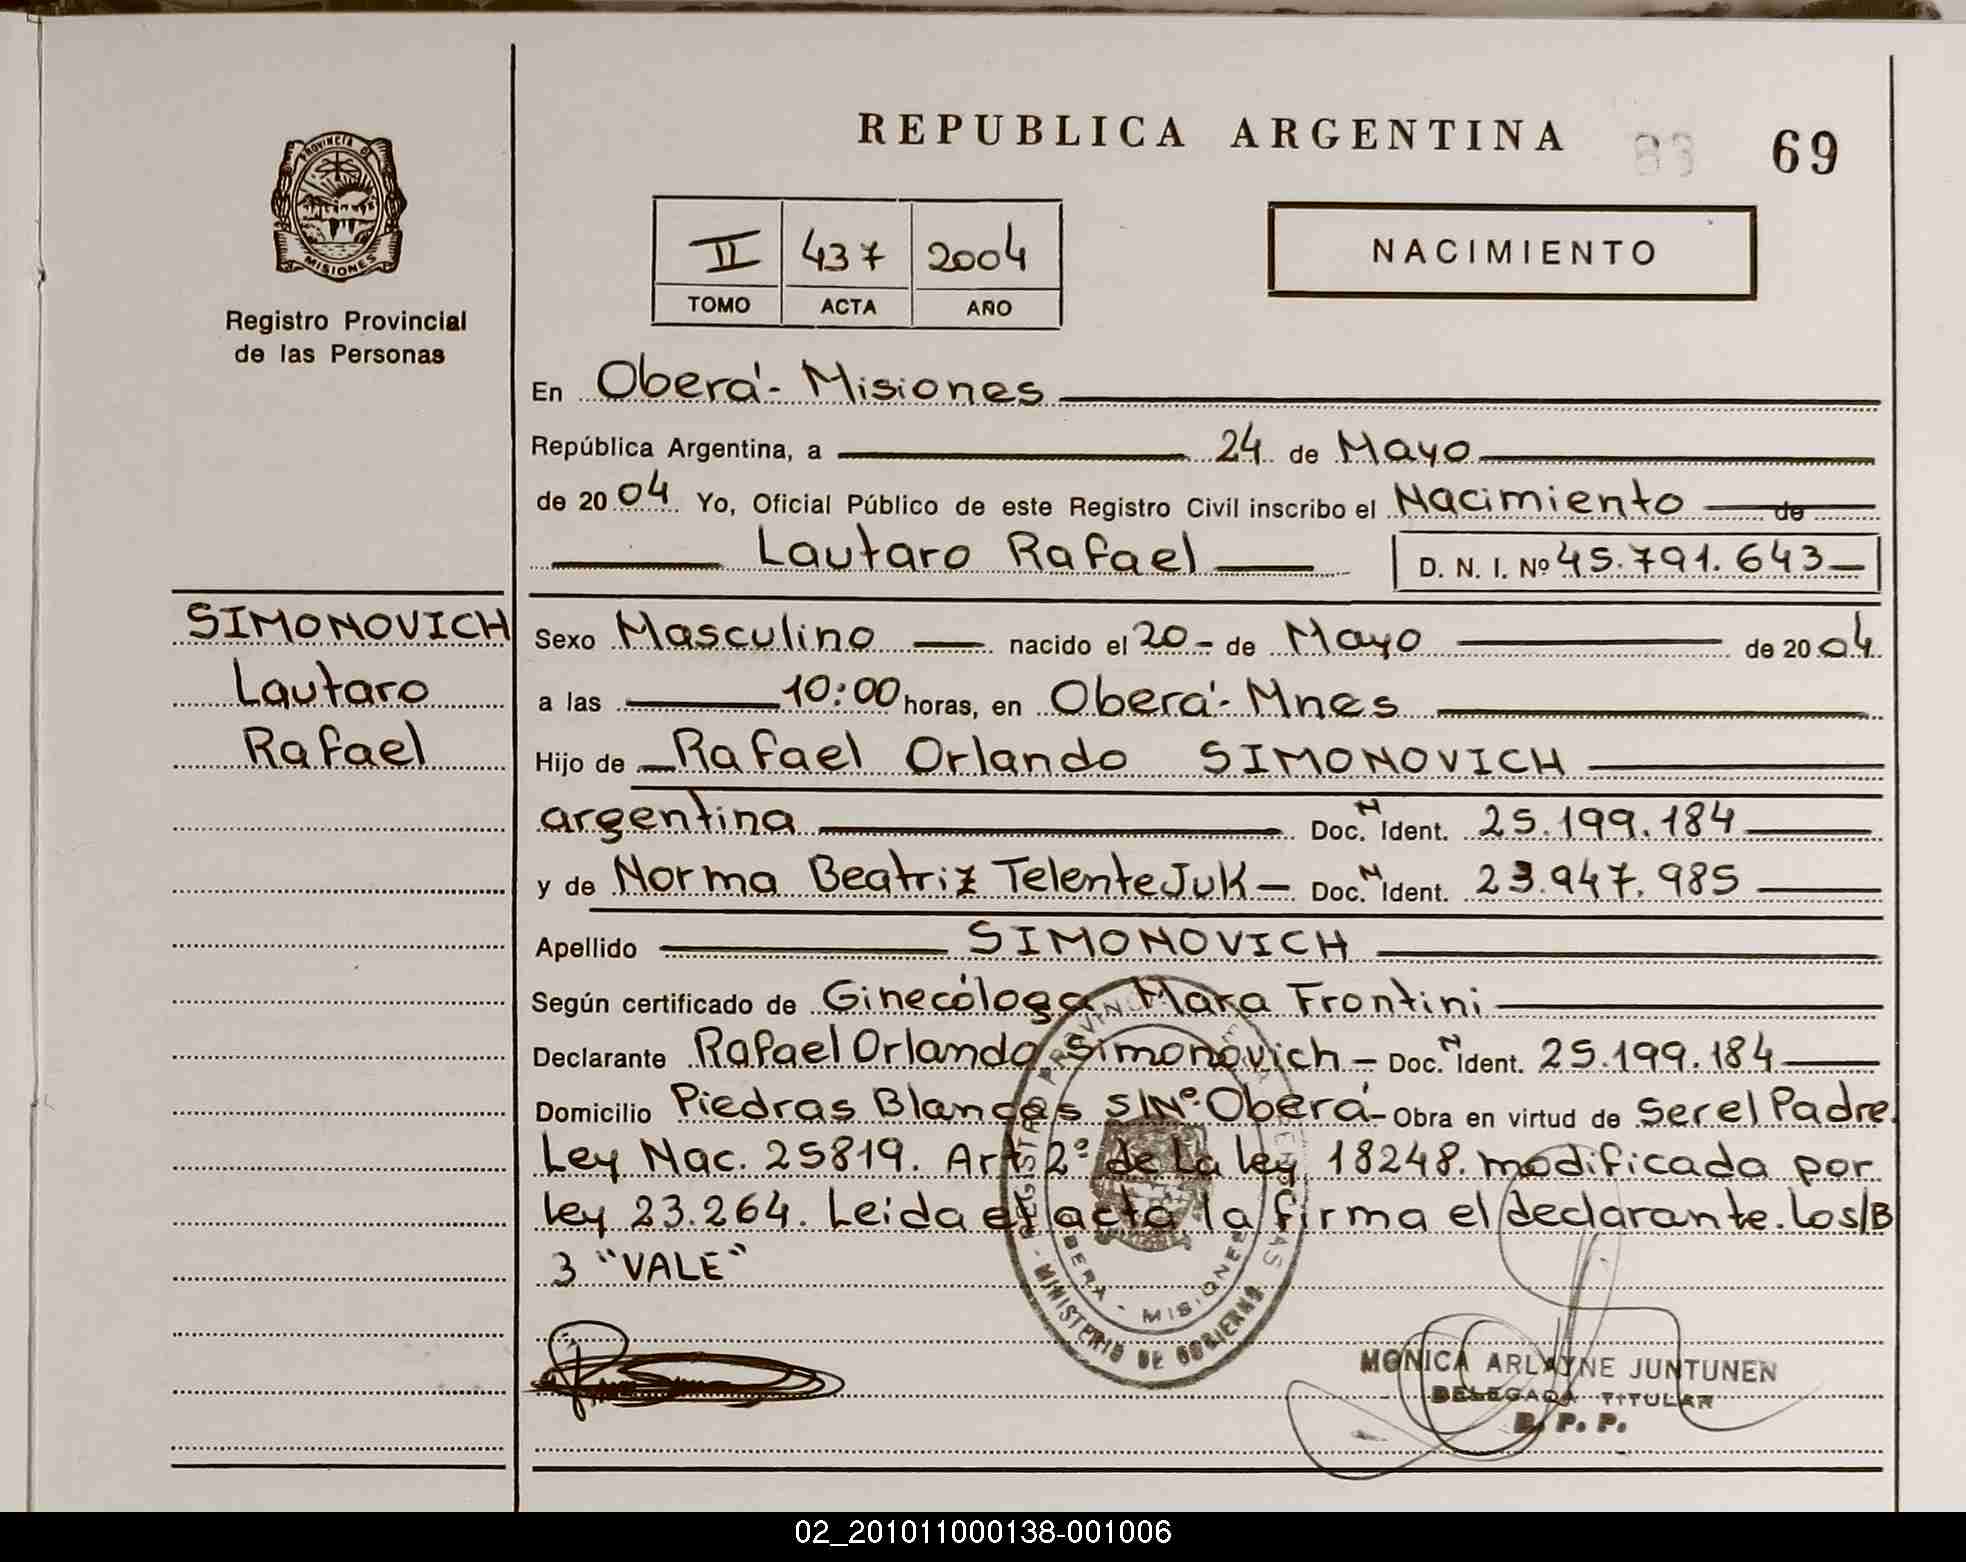 REPUBLICA ARGENTINA
69
PROVINCIA DE
MISIONES
Registro Provincial
de las Personas
II 437 2004
TOMO ACTA AÑO
NACIMIENTO
En Oberá - Misiones
República Argentina, a 24 de Mayo
de 2004 Yo, Oficial Público de este Registro Civil inscribo el Nacimiento de
Lautaro Rafael D. N. I. Nº 45.791.643
SIMONOVICH
Lautaro
Rafael
Sexo Masculino nacido el 20 - de Mayo de 2004
a las 10:00 horas, en Oberá - Mnes
Hijo de Rafael Orlando SIMONOVICH
argentina Doc. N Ident. 25.199.184
y de Norma Beatriz TelenteJuk - Doc. N Ident. 23.947.985
Apellido SIMONOVICH
Según certificado de Ginecóloga Mara Frontini
Declarante Rafael Orlando Simonovich - Doc. N Ident. 25.199.184
Domicilio Piedras Blancas S/Nº Oberá - Obra en virtud de Ser el Padre.
Ley Nac. 25819. Art 2º de La ley 18248. modificada por
ley 23.264. Leida el acta la firma el declarante. los/B
3 "VALE"
REGISTRO PROVINCIAL
OBERA - MISIONES
MINISTERIO DE GOBIERNO
MONICA ARLAYNE JUNTUNEN
DELEGADA TITULAR
R. P. P.
02_201011000138-001006